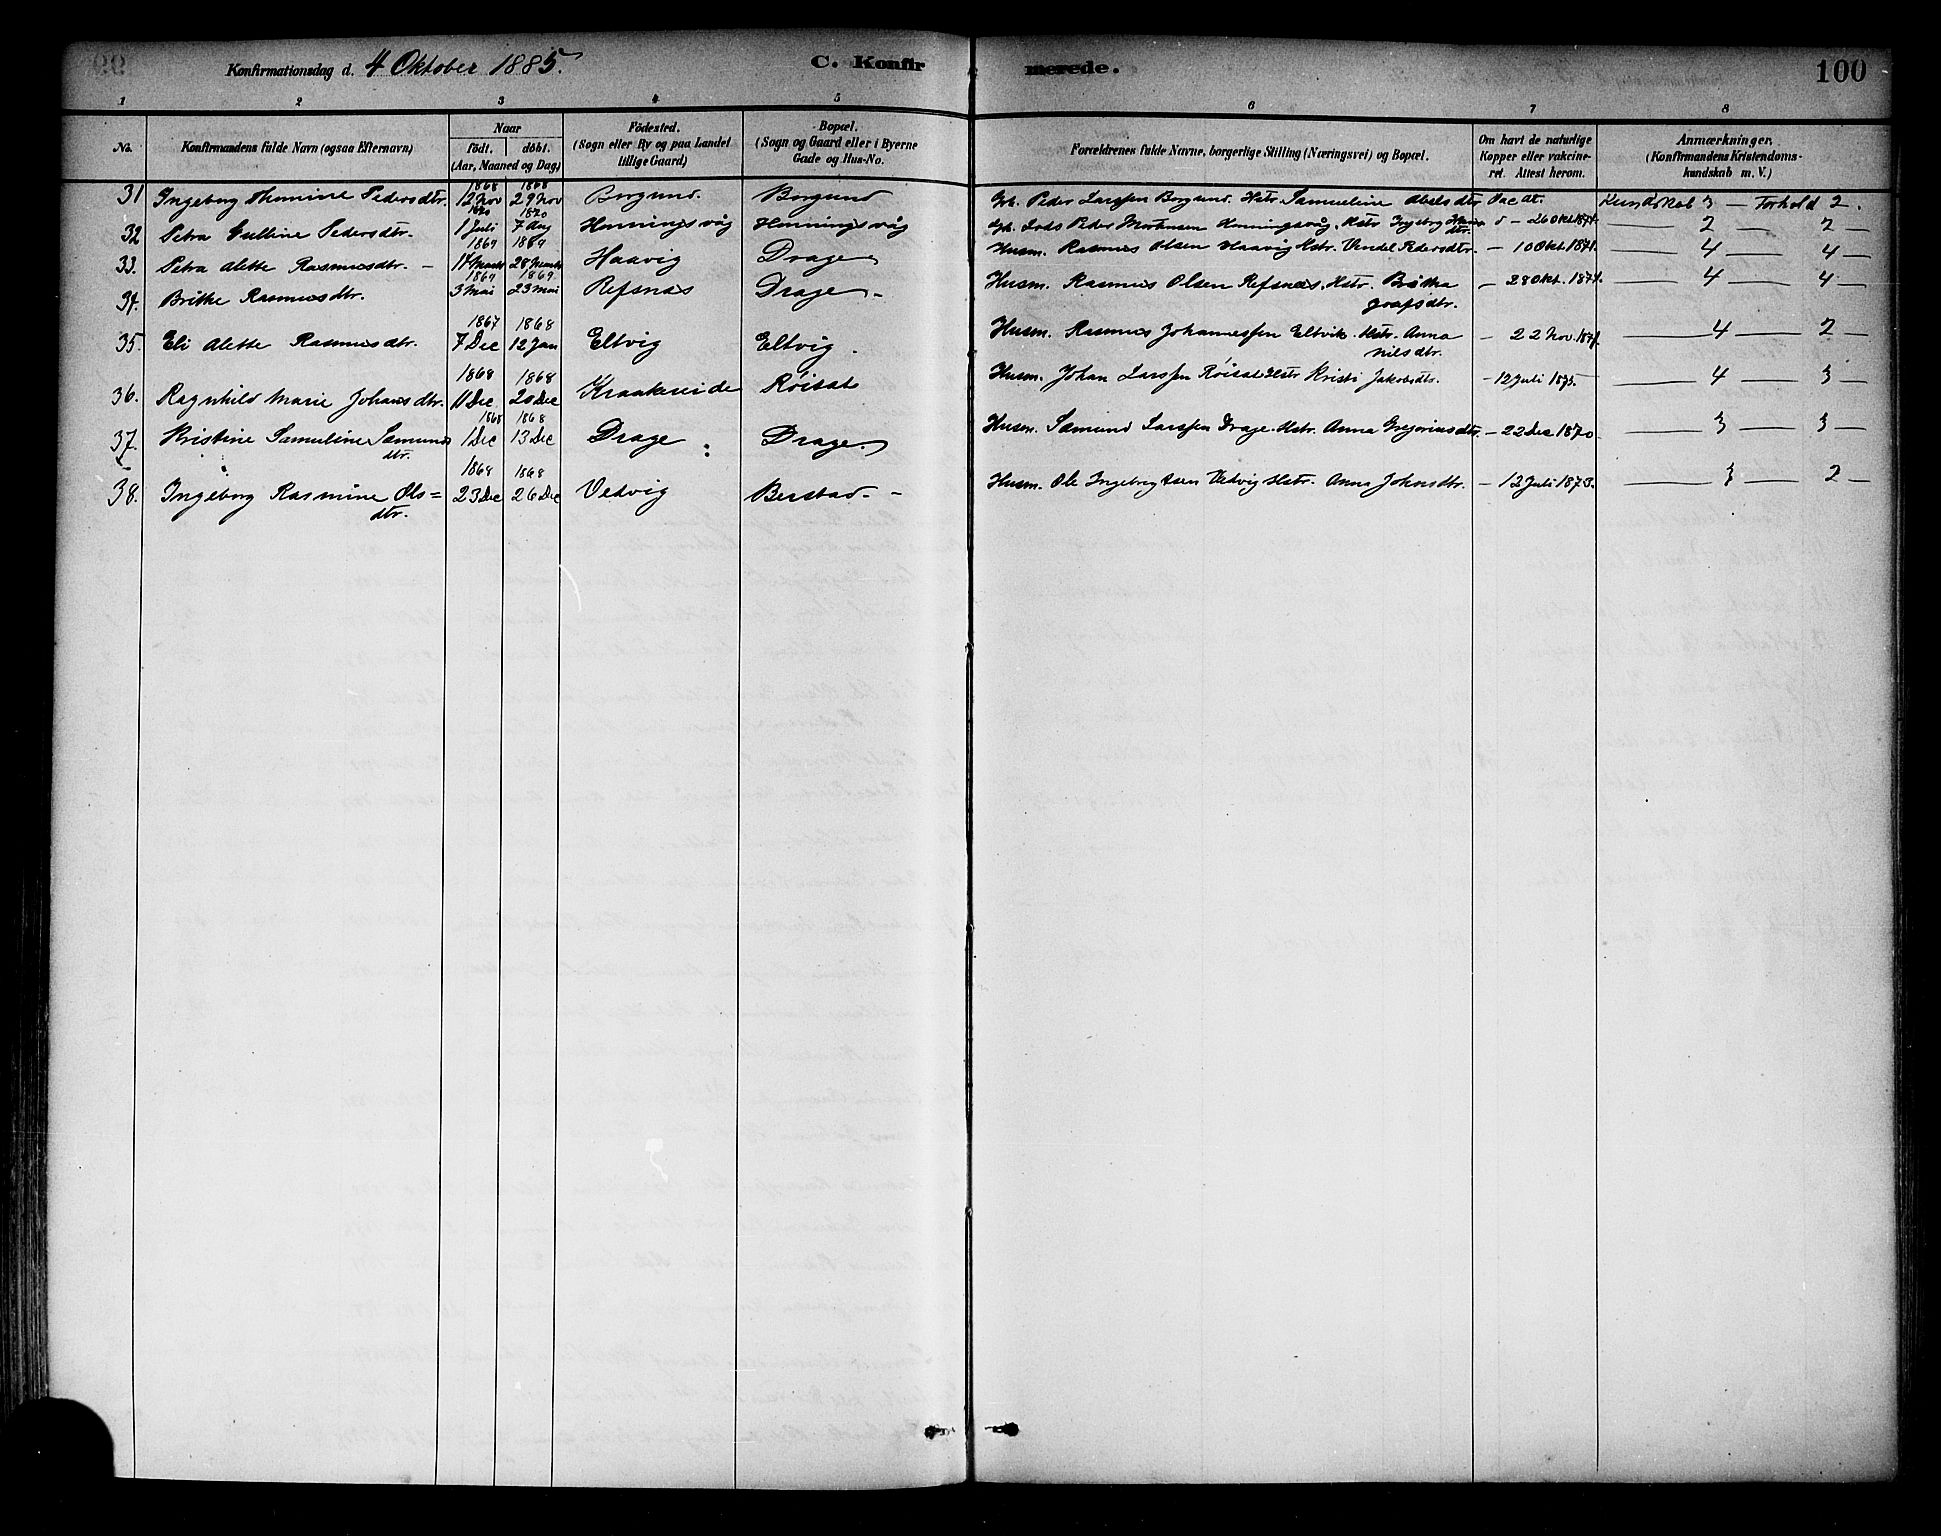 Konfirmationsdag d. 4 Oktober 1885. C. Konfir merede. 100
1 2 3 4 5 6 7 8
No. Konfirmandens fulde Navn (ogsaa Efternavn) Naar födt. döbt. (Aar, Maaned og Dag) Födested. (Sogn eller By og paa Landet tillige Gaard) Bopæl. (Sogn og Gaard eller i Byerne Gade og Hus-No. Forældrenes fulde Navne, borgerlige Stilling (Næringsvei) og Bopæl. Om havt de naturlige Kopper eller vakcineret. Attest herom. Anmærkninger. (Konfirmandens Kristendomskundskab m. V.)
31 Ingeborg Thomine Pedersdtr. 1868 12 Nov 1868 29 Nov Borgund. Borgund Gb. Peder Larssen Borgund. Hstr. Samueline Abelsdtr. Vac. at. Kundskab 3 — Forhold 2.
32 Petra Gulline Pedersdtr. 1870 1 Juli 1870 7 Aug Honningsvåg Honningsvåg Gb. Lods Peder Mortensen Honningsvåg, Hstr Ingeborg dtr. d — 26 Okt 1871. — 2 — 2 —
33. Petra Alette Rasmusdtr. — 1869 14 Marts 1869 28 Marts Haavig Drage Husm. Rasmus Olsen Haavig Hstr. Vendel Pedersdtr. — 10 Okt. 1871. — 4 — 4 —
34. Brithe Rasmusdtr. 1869 3 Mai 1869. 23 Mai Refsnæs Drage. - Husm. Rasmus Olsen Refsnæs. Hstr. Britha dtr. — 28 Okt. 1871. — 4 — 4 —
35. Eli Alette Rasmusdtr. 1867 7 Dec 1868 12 Jan Eltvig Eltvig. Husm. Rasmus Johannessen Eltvik. Hstr. Anna Nilsdtr. — 22 Nov. 1871. — 4 — 2 —
36. Ragnhild Marie Johansdtr. 1868 11 Dec. 1868 20 Dec Kraakeneide Röisat Husm. Johan Larssen Röisat Hstr Kristi Jakobsdtr. — 12 Juli 1875. — 4 — 3 —
37. Kristine Samuline Samunds dtr. 1868 1 Dec 1868 13 Dec Drage Drage. Husm. Samund Larssen Drage. Hstr. Anna Gregoriusdtr. — 22 Dec 1870. — 3 — 3 —
38. Ingeborg Rasmine Ols= dtr. 1868 23 Dec 1868 26 Dec Vedvig Berstad. - Husm. Ole Ingebrigtsen Vedvig Hstr. Anna Johnsdtr. — 12 Juli 1873. — 3 — 2 —